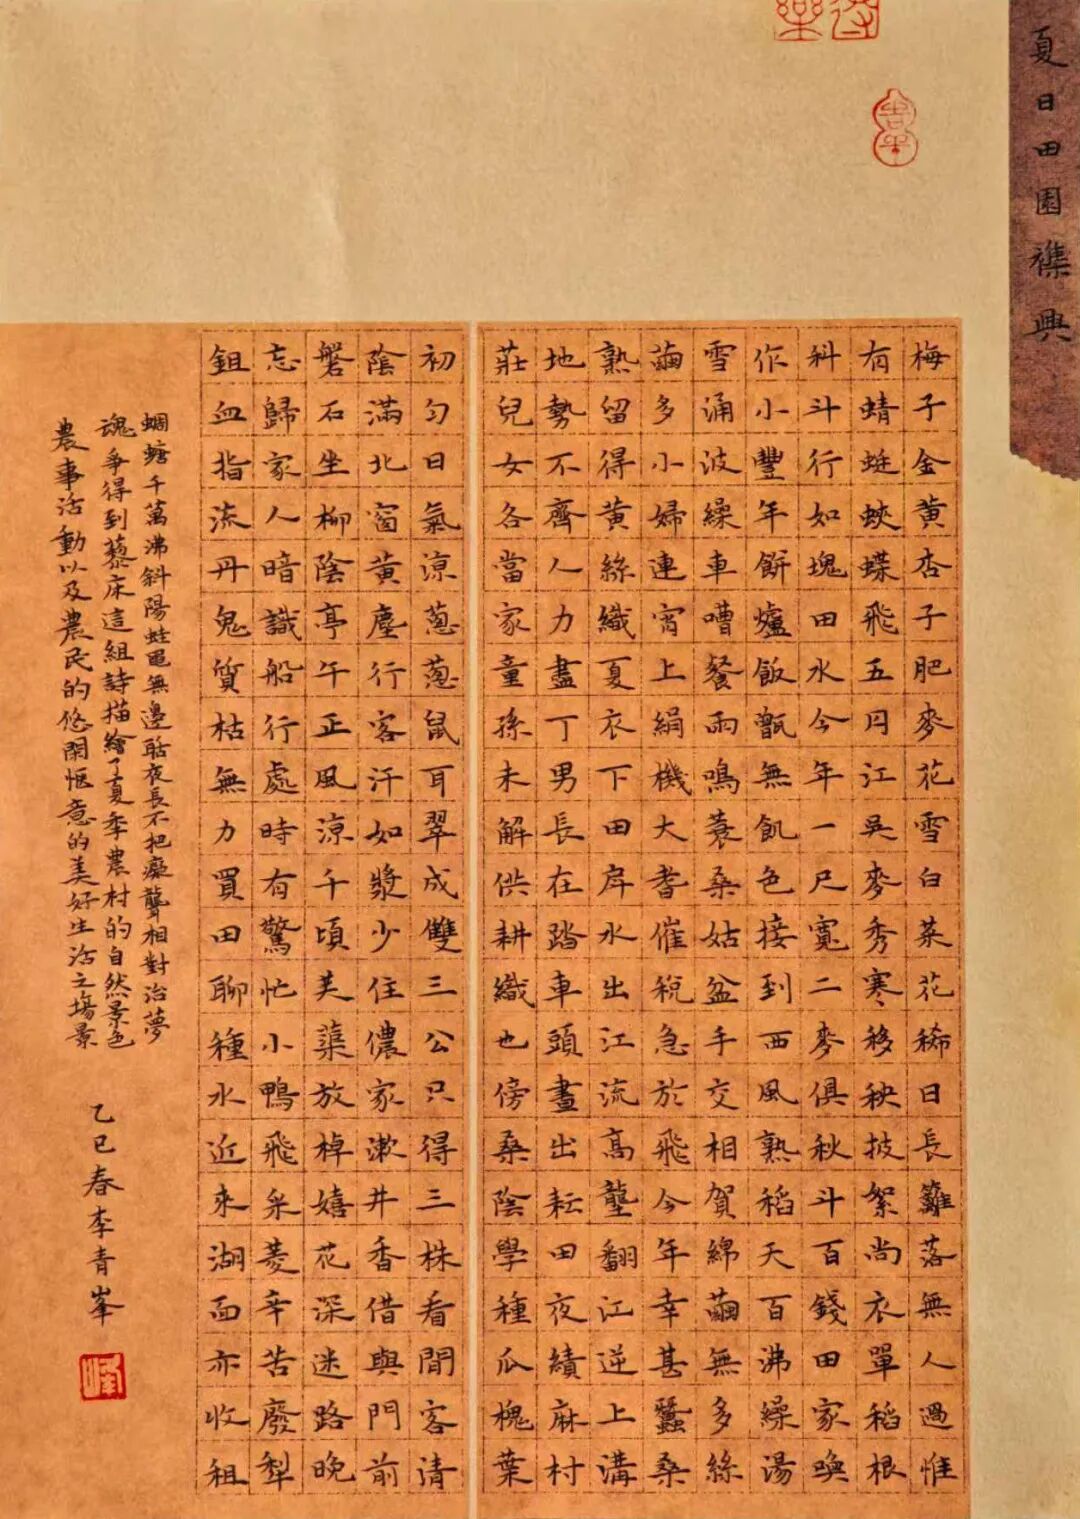 夏日田園襍興
梅子金黄杏子肥麥花雪白菜花稀日長籬落無人過惟
有蜻蜓蛺蝶飛五月江吳麥秀寒移秧披絮尚衣單稻根
科斗行如塊田水今年一尺寬二麥俱秋斗百錢田家喚
作小豐年餅爐飯甑無飢色接到西風熟稻天百沸繰湯
雪涌波繰車嘈餐雨鳴蓑桑姑盆手交相賀綿繭無多絲
繭多小婦連宵上絹機大耆催税急於飛今年幸甚蠶桑
熟留得黄絲織夏衣下田戽水出江流高壟翻江逆上溝
地勢不齊人力盡丁男長在踏車頭晝出耘田夜績麻村
莊兒女各當家童孫未解供耕織也傍桑陰學種瓜槐葉
初匀日氣涼葱葱鼠耳翠成雙三公只得三株看閒客清
陰滿北窗黄塵行客汗如漿少住儂家漱井香借與門前
磐石坐柳陰亭午正風涼千頃芙蕖放棹嬉花深迷路晚
忘歸家人暗識船行處時有驚忙小鴨飛采菱辛苦廢犁
鉏血指流丹鬼質枯無力買田聊種水近來湖面亦收租
蜩螗千萬沸斜陽蛙黽無邊聒夜長不把癡聾相對治夢
魂争得到藜床這組詩描繪了夏季農村的自然景色
農事活動以及農民的悠閑愜意的美好生活之場景
乙巳春李青峯